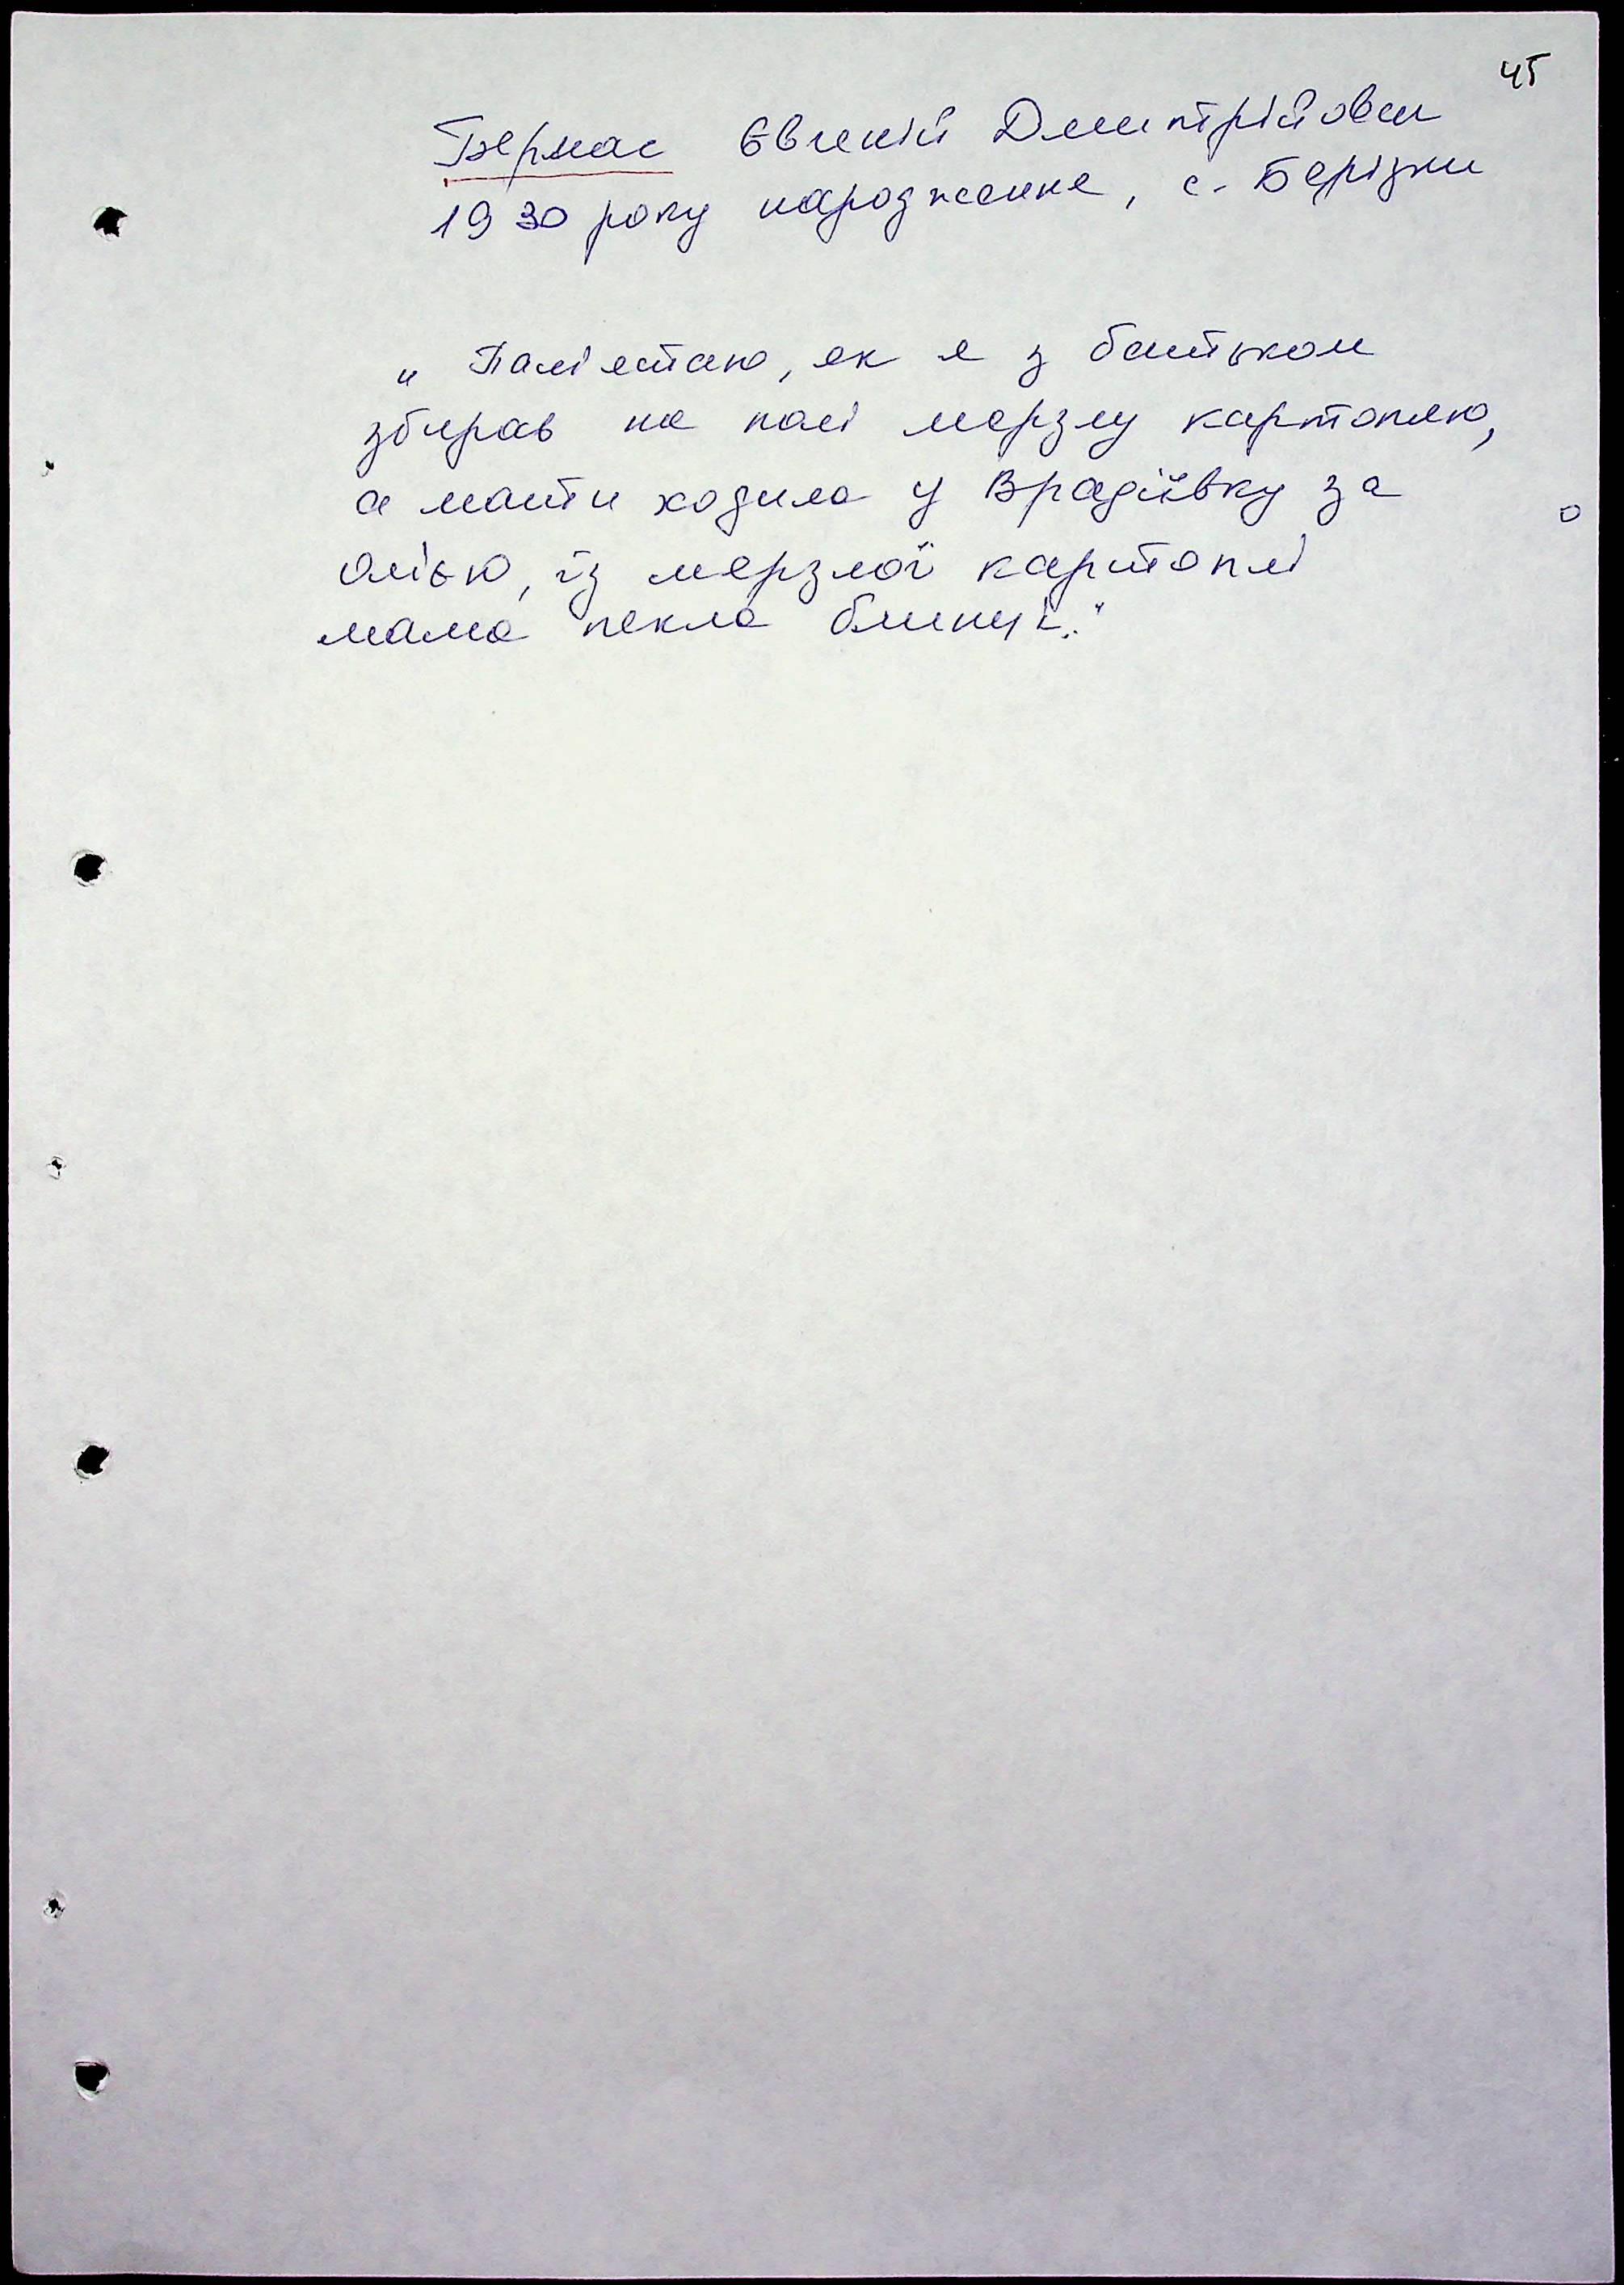 45
Бермас Євгеній Дмитрійович
1930 року народження, с. Берізки
„ Пам'ятаю, як я з батьком
збирав на полі мерзлу картоплю,
а мати ходила у Врадіївку за
олією, із мерзлої картоплі
мама пекла блинці."